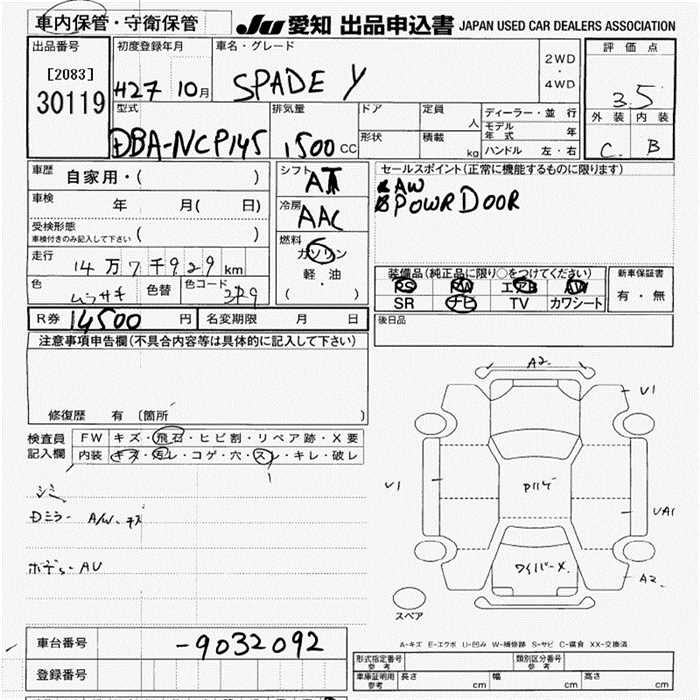 車内保管・守衛保管 JU 愛知 出品申込書 JAPAN USED CAR DEALERS ASSOCIATION
出品番号 初度登録年月 車名・グレード 2WD・4WD 評価点
[2083] H27 10月 SPADE Y 3.5
30119
型式 排気量 ドア 定員 人 ディーラー・並行 外装 内装
DBA-NCP145 1500 CC 形状 積載 kg モデル年式 年 C B
ハンドル 左・右
車歴 自家用・( ) シフト AT セールスポイント(正常に機能するものに限ります)
車検 年 月( 日) 冷房 AAC AW
受検形態 POWR DOOR
車検付きのみ記入して下さい ( ) 燃料 ガソリン
走行 14万7千929km 軽・油 装備品(純正品に限り○をつけてください) 新車保証書
色 ムラサキ 色替 色コード ( ・ ) PS PW エアB AW 有・無
SR ナビ TV カワシート
R券 14500 円 名変期限 月 日 後日品
注意事項申告欄(不具合内容等は具体的に記入して下さい)
修復歴 有 (箇所 )
検査員 FW キズ・飛石・ヒビ割・リペア跡・X要
記入欄 内装 キズ・汚レ・コゲ・穴・スレ・キレ・破レ
シミ
Dミラー A/W キズ
ボデー AU
A2
U1
U1
UA1
A2
ワイパーX
スペア
A-キズ E-エクボ U-凹み W-補修跡 S-サビ C-腐食 XX-交換済
車台番号 -9032092
登録番号
形式指定番号 参考 類別区分番号 参考
車庫証明用 参考 長さ cm 幅 cm 高さ cm